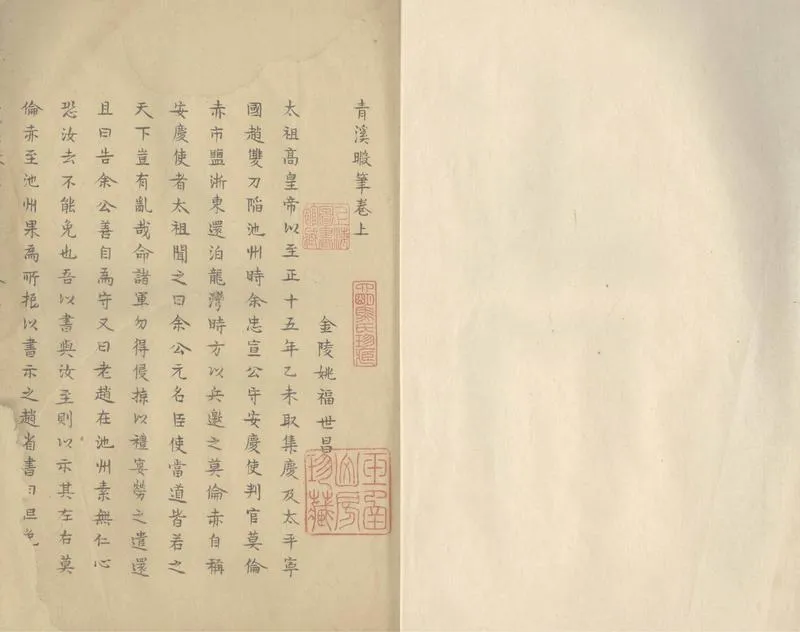 青溪暇筆卷上
上海圖書館藏
金陵姚福世昌
太祖高皇帝以至正十五年乙未取集慶及太平寧
國趙雙刀陷池州時余忠宣公守安慶使判官莫倫
赤市鹽浙東還泊龍灣時方以兵邀之莫倫赤自稱
安慶使者太祖聞之曰余公元名臣使當道皆若之
天下豈有亂哉命諸軍勿得侵掠以禮宴勞之遣還
且曰告余公善自為守又曰老趙在池州素無仁心
恐汝去不能免也吾以書與汝至則以示其左右莫
倫赤至池州果為所扼以書示之趙省書